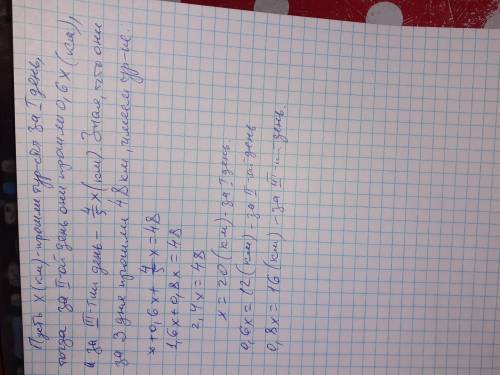 Пусть x (км) - прошли тур-сты за I день,
тогда за II-ой день они прошли 0,6x (км),
а за III-тий день - 4/5 x (км). Зная, что они
за 3 дня прошли 48 км, имеем ур-ие:
x + 0,6x + 4/5 x = 48
1,6x + 0,8x = 48
2,4x = 48
x = 20 (км) - за I день
0,6x = 12 (км) - за II-ой день
0,8x = 16 (км) - за III-ий день.